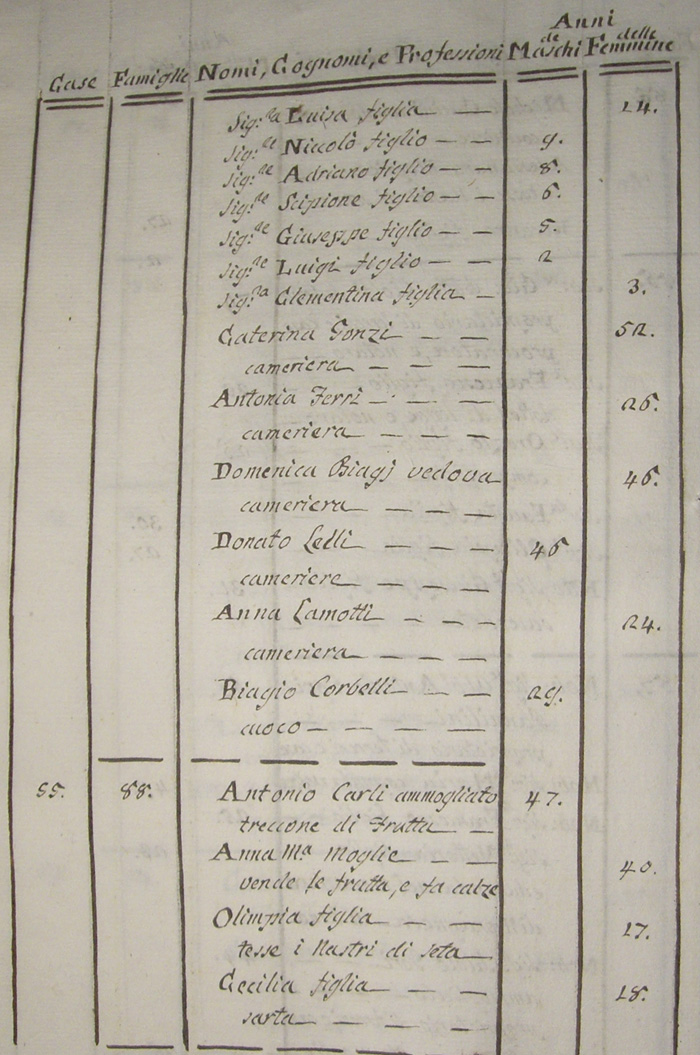 Anni
Case Famiglie Nomi, Cognomi, e Professioni de Maschi delle Femmine
Sig.ra Luisa figlia — — 14.
Sig.re Niccolò figlio — — 9.
Sig.re Adriano figlio — — 8.
Sig.re Scipione figlio — — 6.
Sig.re Giuseppe figlio — — 5.
Sig.re Luigi figlio — — 2
Sig.ra Clementina figlia — 3.
Caterina Gonzi — — 52.
cameriera — — —
Antonia Ferri — — — 26.
cameriera — — —
Domenica Biagj vedova 46.
cameriera — — —
Donato Lelli — — — 46
cameriere — — —
Anna Lamotti — — — 24.
cameriera — — —
Biagio Corbelli — — 29.
cuoco — — — —
55. 88. Antonio Carli ammogliato 47.
treccone di frutta —
Anna Ma Moglie — — 40.
vende le frutta, e fa calze
Olimpia figlia — — 17.
tesse i Nastri di seta
Cecilia figlia — — 18.
sarta — — — —